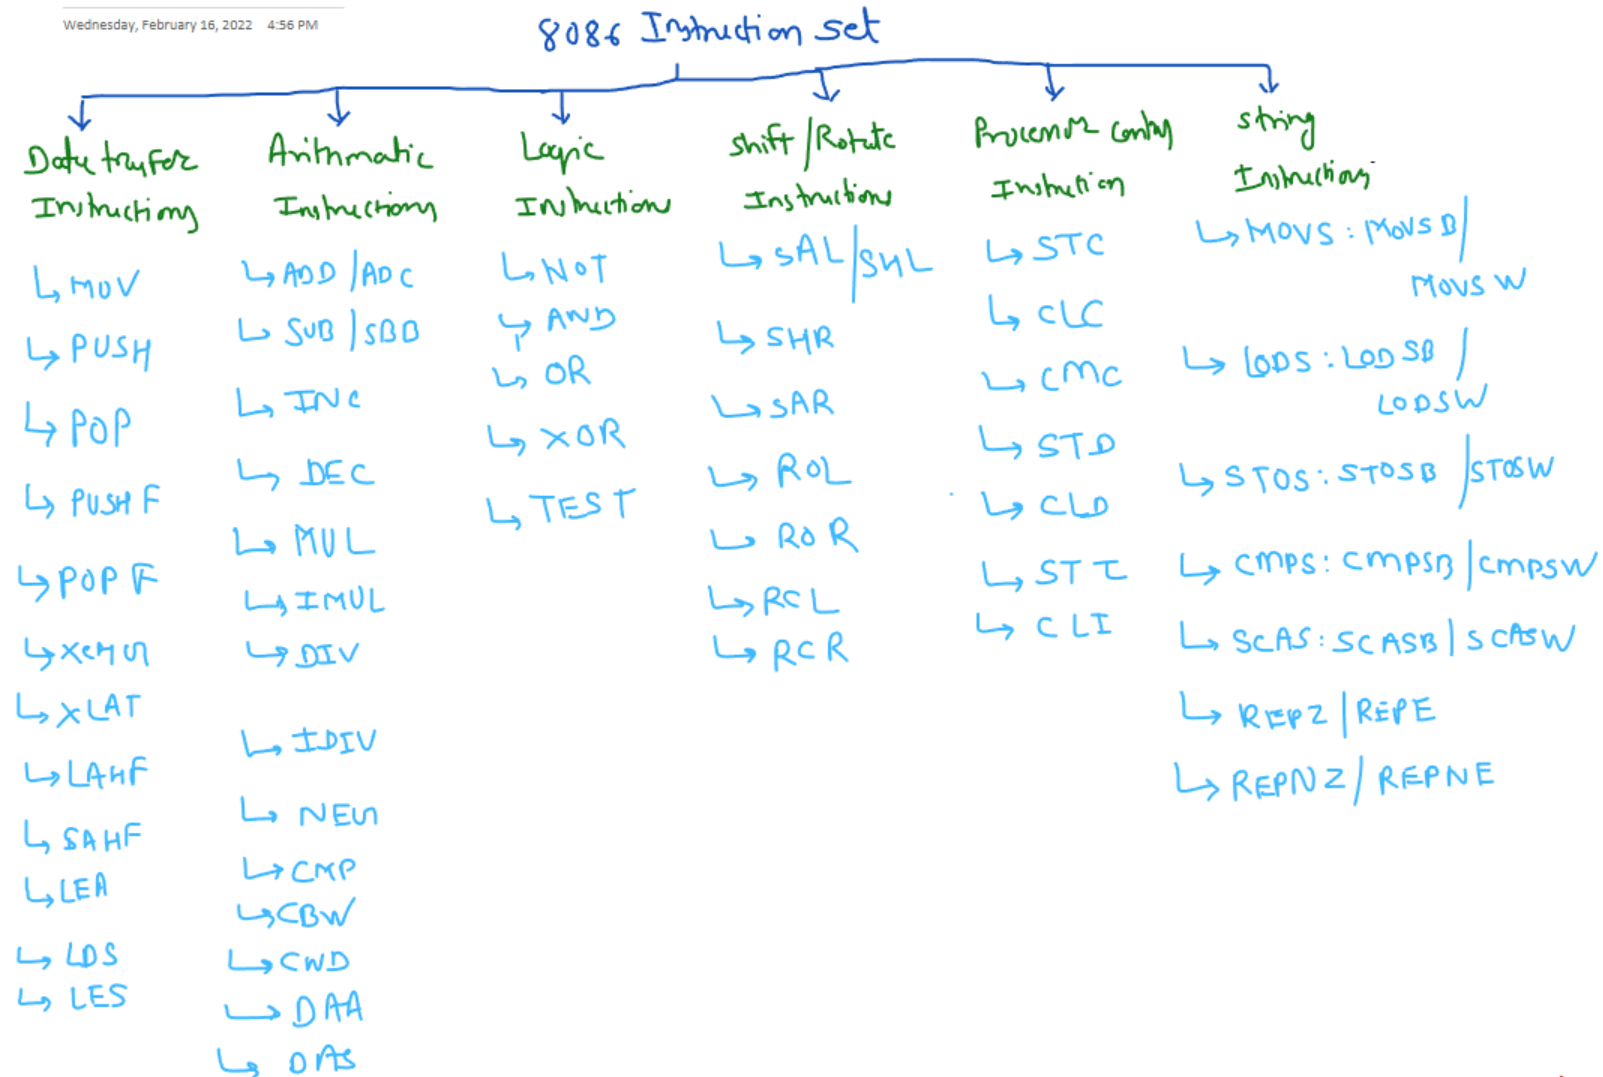 Wednesday, February 16, 2022 4:56 PM
8086 Instruction set
Data tranfer
Instructions
↳ MOV
↳ PUSH
↳ POP
↳ PUSHF
↳ POPF
↳ XCHG
↳ XLAT
↳ LAHF
↳ SAHF
↳ LEA
↳ LDS
↳ LES
Arithmatic
Instructions
↳ ADD / ADC
↳ SUB / SBB
↳ INC
↳ DEC
↳ MUL
↳ IMUL
↳ DIV
↳ IDIV
↳ NEG
↳ CMP
↳ CBW
↳ CWD
↳ DAA
↳ DAS
Logic
Instructions
↳ NOT
↳ AND
↳ OR
↳ XOR
↳ TEST
Shift / Rotate
Instructions
↳ SAL / SHL
↳ SHR
↳ SAR
↳ ROL
↳ ROR
↳ RCL
↳ RCR
Processor control
Instruction
↳ STC
↳ CLC
↳ CMC
↳ STD
↳ CLD
↳ STI
↳ CLI
string
Instructions
↳ MOVS : MOVSB /
MOVSW
↳ LODS : LODSB /
LODSW
↳ STOS : STOSB / STOSW
↳ CMPS : CMPSB / CMPSW
↳ SCAS : SCASB / SCASW
↳ REPZ / REPE
↳ REPNZ / REPNE